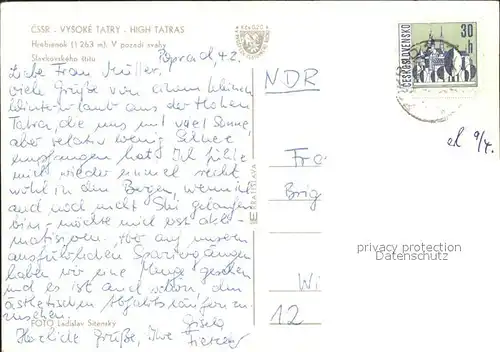 ČSSR - VYSOKÉ TATRY - HIGH TATRAS
Hrebienok (1 263 m). V pozadí svahy
Slavkovského štítu
Poprad, 4.2.
Liebe Frau Müller.
viele Grüße von einem kleinen
Winterurlaub aus der Hohen
Tatra, die uns mit viel Sonne,
aber relativ wenig Schnee
empfangen hat. Ich fühle
mich wieder einmal recht
wohl in den Bergen, wenn ich
auch noch nicht Ski gelaufen
bin - möchte mich erst akli-
matisieren. Aber auf unseren
ausführlichen Spaziergängen
haben wir eine Menge gesehen
und es ist auch schön, den
ästhetischen Abfahrtsläufern zu-
zusehen.
FOTO Ladislav Sitenský
Herzliche Grüße, Ihre
Gisela
NDR
30
h
ČESKOSLOVENSKO
BRATISLAVA
Fra
Brig
Wi
12
privacy protection
Datenschutz